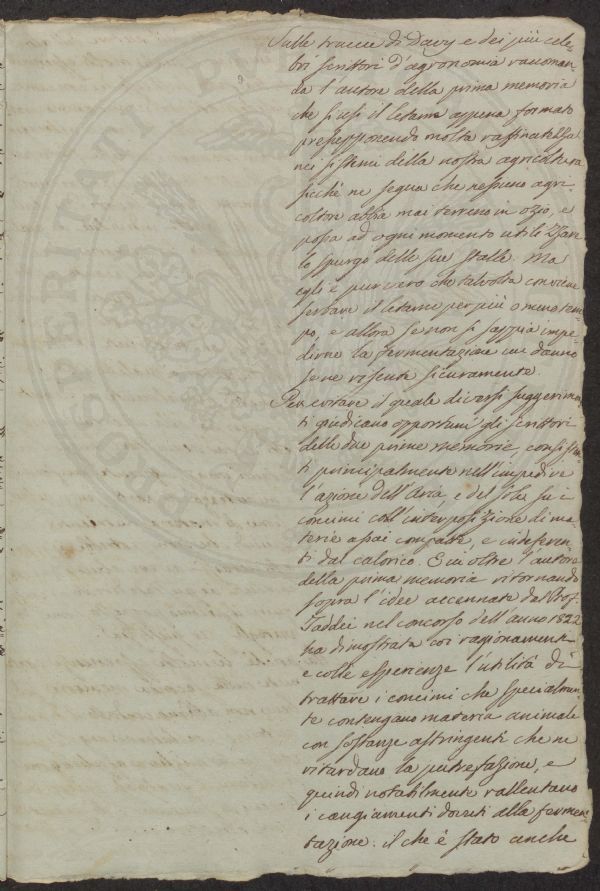 Sulle traccie di Davy e dei più cele=
bri scrittori d'agronomia raccoman=
da l'autore della prima memoria
che si usi il letame appena formato
presupponendo molta raffinatezza
nei sistemi della nostra agricoltura
sicchè ne segua che nessuno agri=
coltore abbia mai terreno in ozio, e
possa ad ogni momento utilizzare
lo spurgo delle sue stalle. Ma
egli è pur vero che talvolta conviene
serbare il letame per più o meno tem=
po, e allora se non si sappia impe=
dirne la fermentazione un danno
se ne risente sicuramente.
Per evitare il quale diversi suggerimen=
ti giudicano opportuni gli scrittori
delle due prime memorie, consisten=
ti principalmente nell'impedire
l'azione dell'Aria, e del Sole su i
concimi coll'interposizione di ma=
terie assai compatte, e indifferen=
ti dal calorico. E in oltre l'autore
della prima memoria ritornando
sopra l'idee accennate dal Prof.
Taddei nel concorso dell'anno 1822
ha dimostrata coi ragionamenti
e colle esperienze l'utilità di
trattare i concimi che specialmen=
te contengano materia animale
con sostanze astringenti che ne
ritardano la putrefazione, e
quindi notabilmente rallentano
i cangiamenti dovuti alla fermen=
tazione: il che è stato anche
PROSPERITATI PUBLICAE